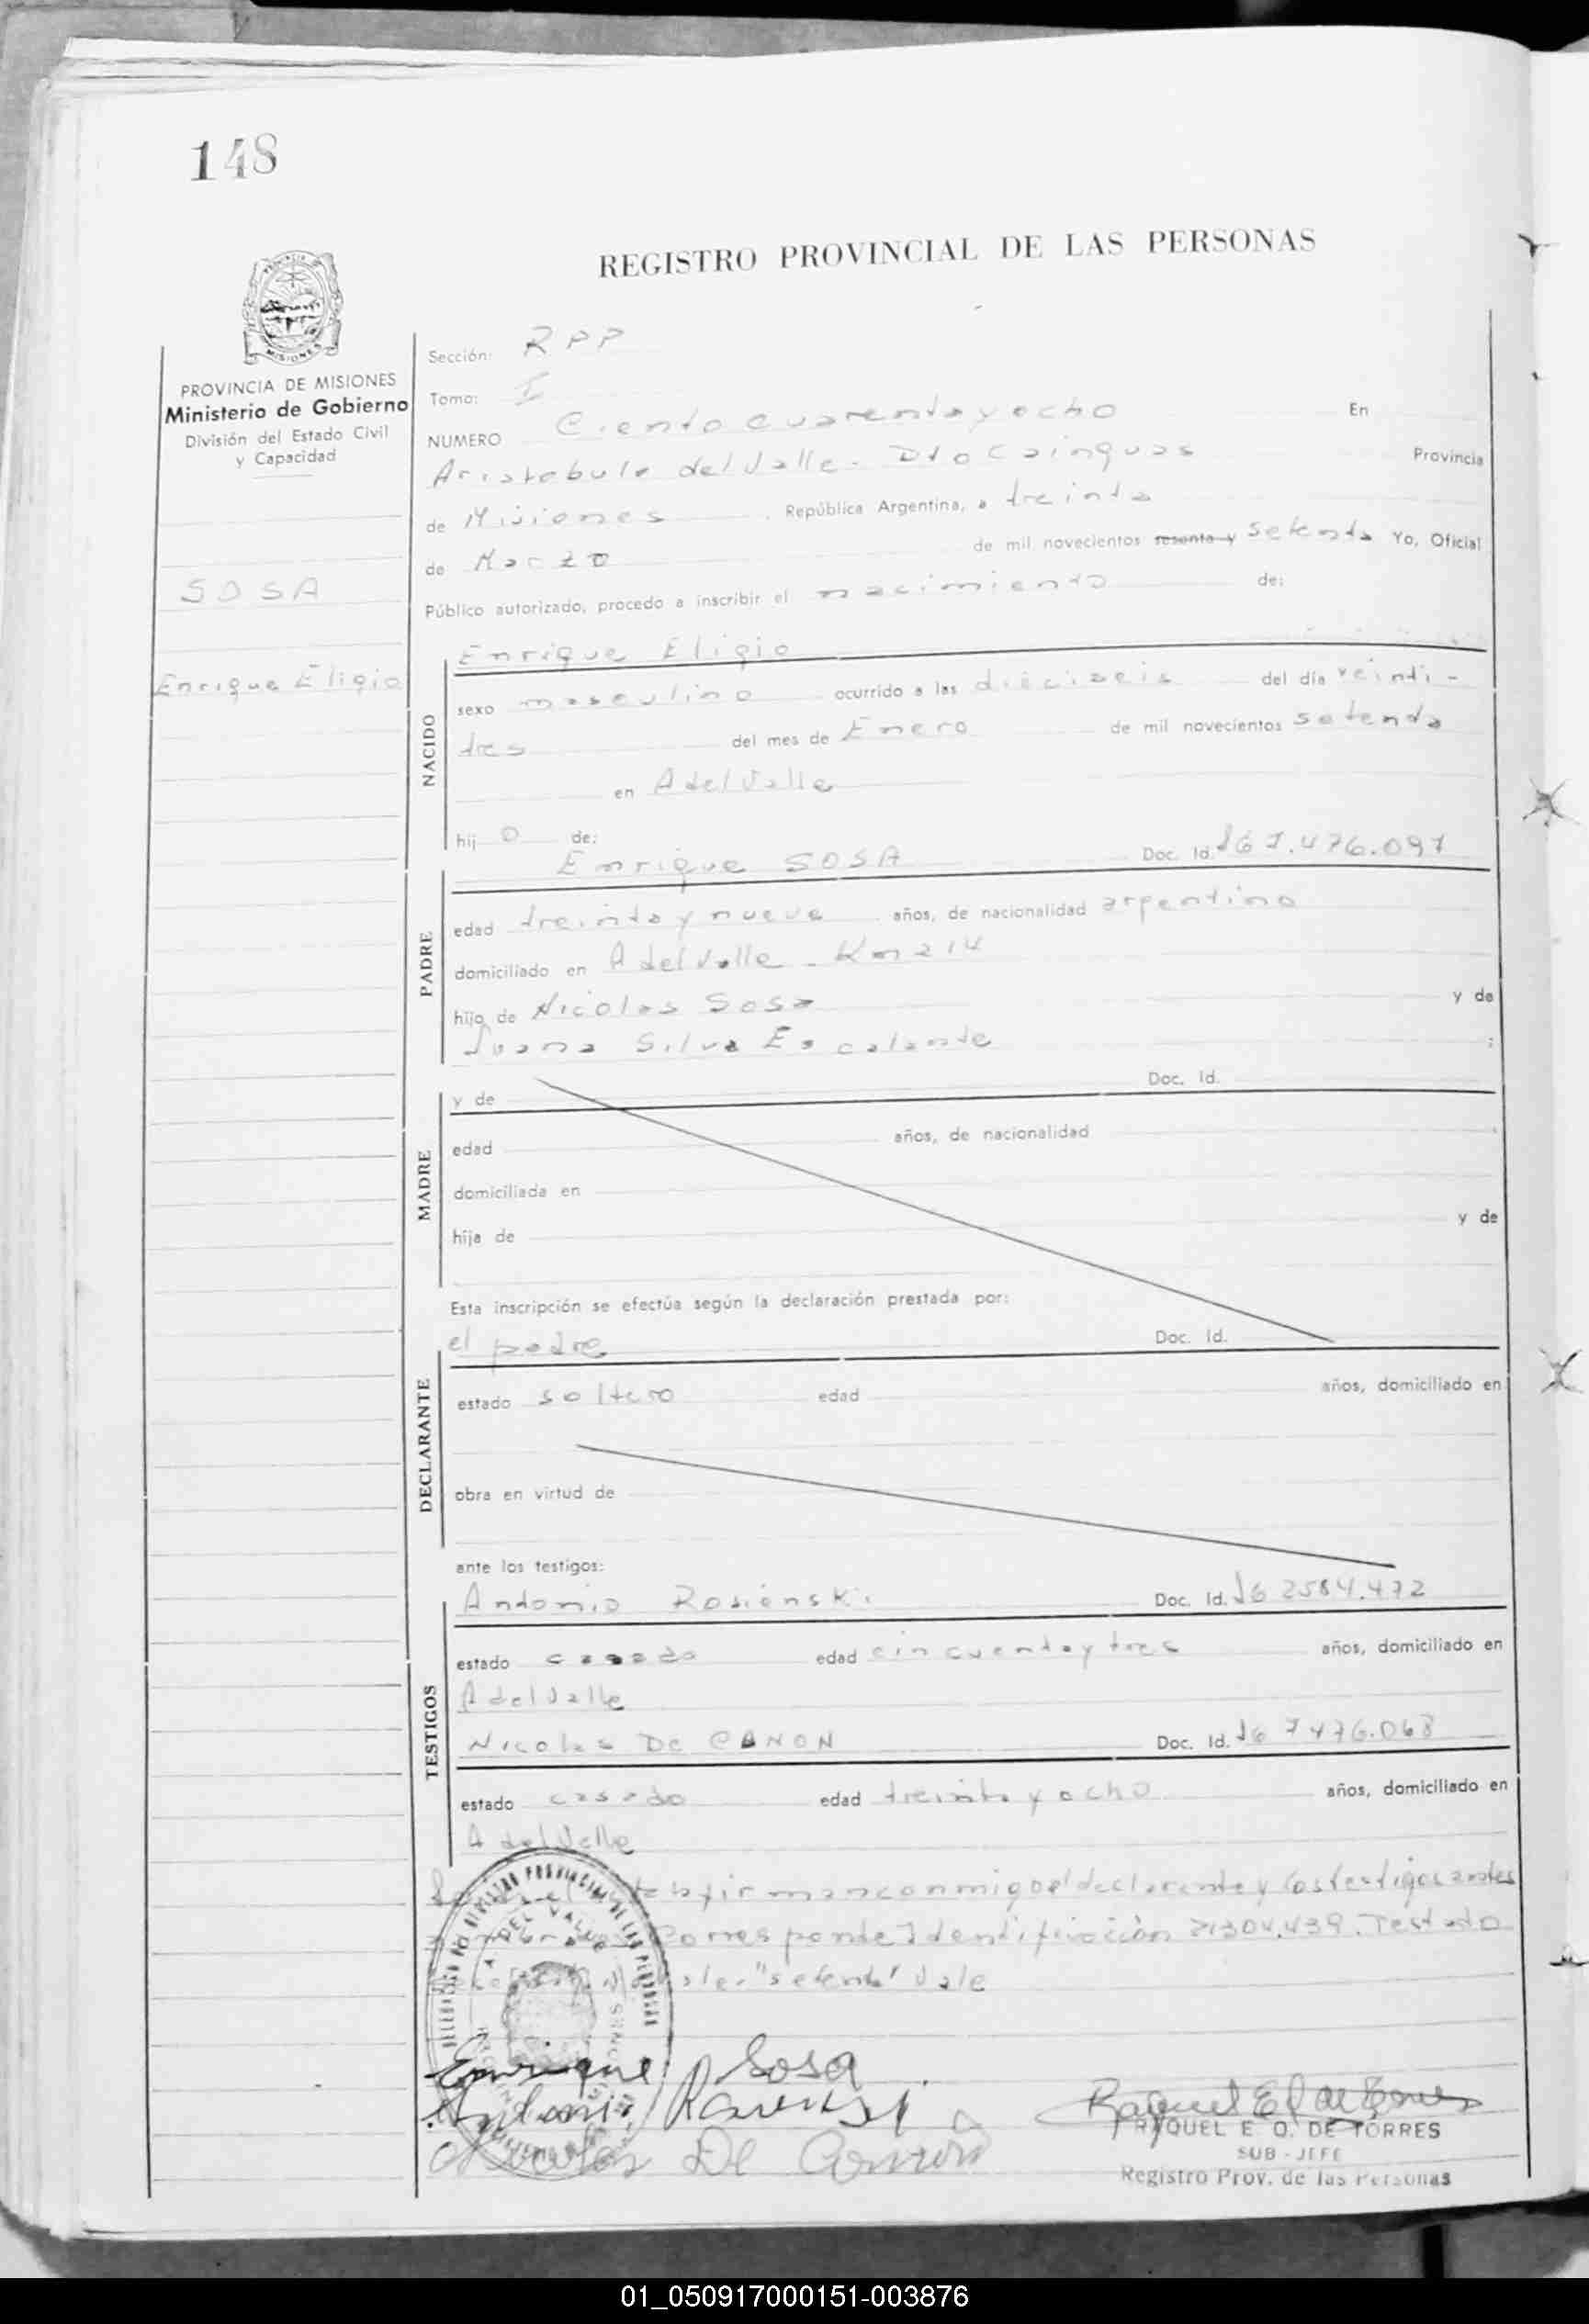 148
REGISTRO PROVINCIAL DE LAS PERSONAS
MISIONES
PROVINCIA DE MISIONES
Ministerio de Gobierno
División del Estado Civil
y Capacidad
SOSA
Enrique Eligio
Sección: RPP
Tomo: I
NUMERO Ciento cuarenta y ocho En
Aristobulo del Valle - Dto Cainguas Provincia
de Misiones . República Argentina, a treinta
de Marzo de mil novecientos sesenta y setenta Yo, Oficial
Público autorizado, procedo a inscribir el nacimiento de:
NACIDO
Enrique Eligio
sexo masculino ocurrido a las dieciseis del día veinti-
tres del mes de Enero de mil novecientos setenta
en A del Valle
hij o de:
PADRE
Enrique SOSA Doc. Id. 7.476.097
edad treinta y nueve años, de nacionalidad argentino
domiciliado en A del Valle - Km 214
hijo de Nicolas Sosa y de
Juana Silva Escalante ;
MADRE
y de Doc. Id.
edad años, de nacionalidad
domiciliada en
hija de y de
Esta inscripción se efectúa según la declaración prestada por:
DECLARANTE
el padre Doc. Id.
estado soltero edad años, domiciliado en
obra en virtud de
ante los testigos:
TESTIGOS
Antonio Rosienski Doc. Id. 2584.472
estado casado edad cincuenta y tres años, domiciliado en
A del Valle
Nicolas De CANON Doc. Id. 7476.068
estado casado edad treinta y ocho años, domiciliado en
A del Valle
firman conmigo el declarante y los testigos antes
Corresponde Identificación 21304.439. Testado
"setenta" Vale
Enrique Sosa
Antonio
Nicolas De Canon
RAQUEL E. O. DE TORRES
SUB-JEFE
Registro Prov. de las Personas
01_050917000151-003876